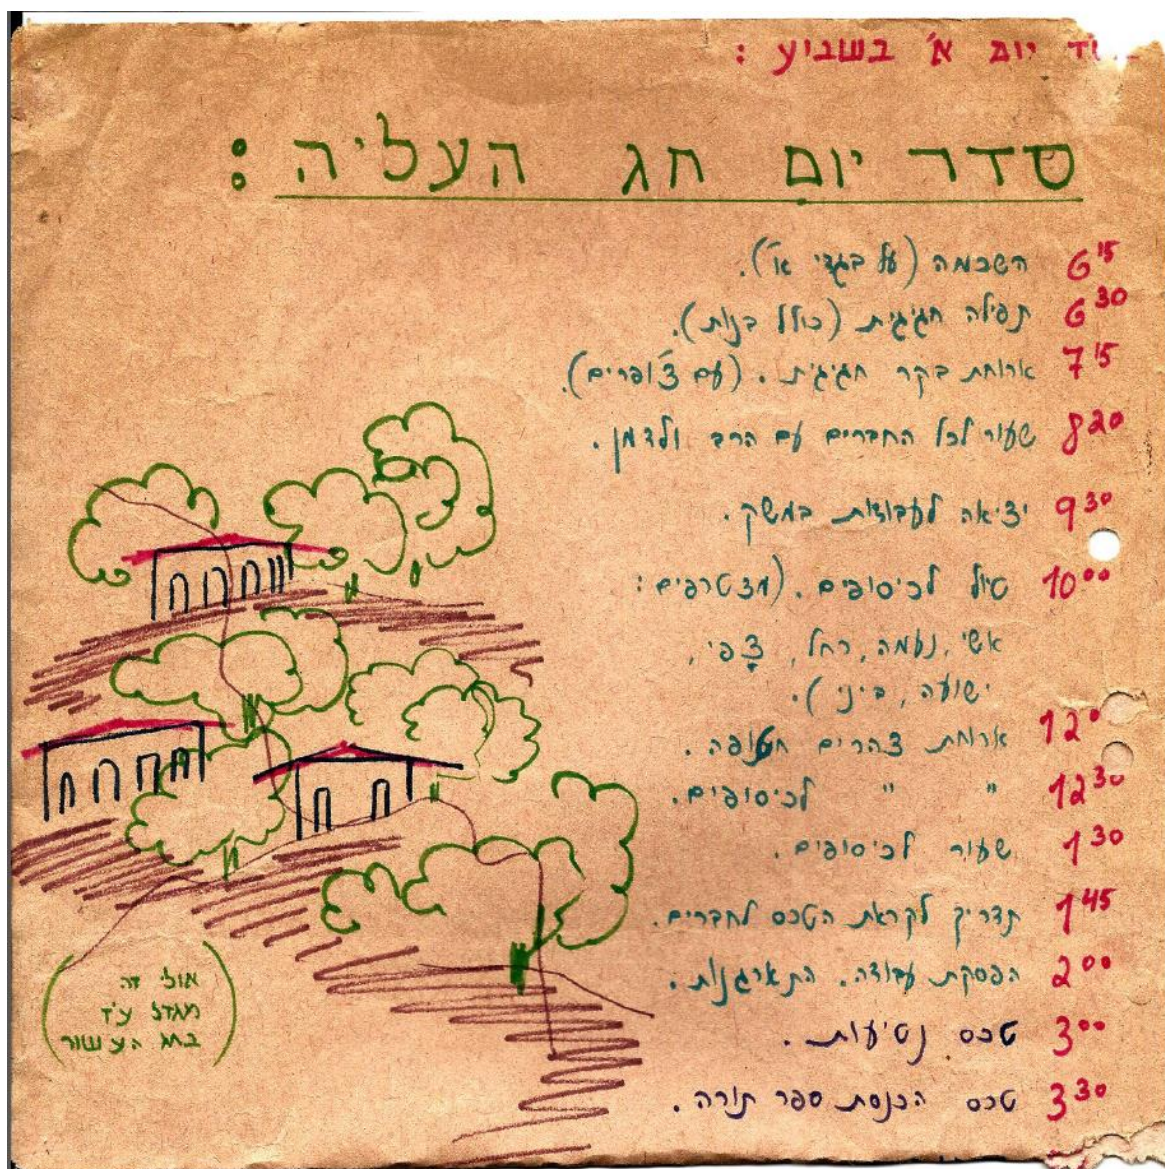 יום א' בשביע :
סדר יום חג העליה :
6 15 השכמה (על בגדי א').
6 30 תפילה חגיגית (כולל בנות).
7 15 ארוחת בקר חגיגית. (עם צ'ופרים).
8 20 שעור לכל החברים עם הרב ולדמן.
9 30 יציאה לעבודות במשק.
10 00 טיול לכיסופים. (מצטרפים:
אשי, נעמה, רחל, צפי,
ישועה, ביני).
12 0 ארוחת צהרים חטופה.
12 30 " " לכיסופים.
1 30 שעור לכיסופים.
1 45 תדריך לקראת הטכס לחברים.
2 00 הפסקת עבודה. התארגנות.
3 00 טכס נטיעות.
3 30 טכס הכנסת ספר תורה.
(אולי זה
מגדל עז
בחג העשור)